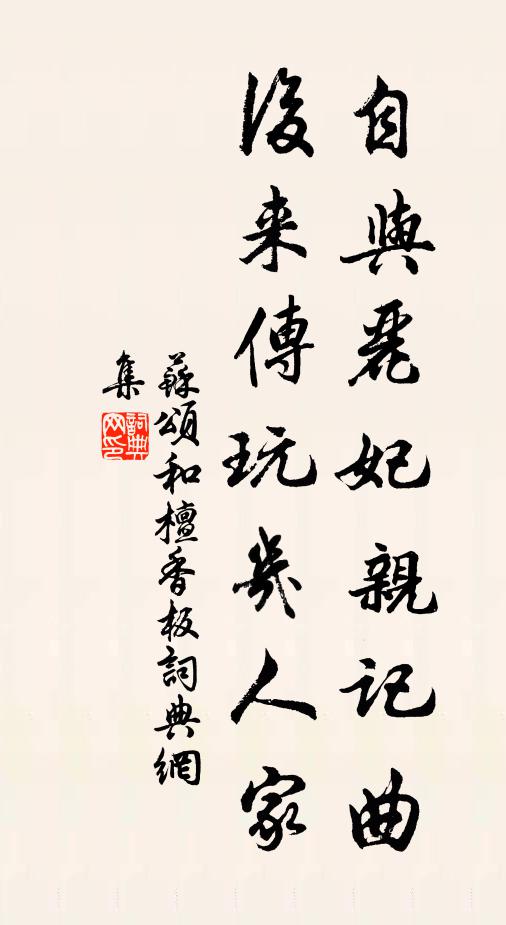 自與麗妃親記曲
後来傳玩幾人家
蘇頌和檀香板詞典網
集
詞典
网印